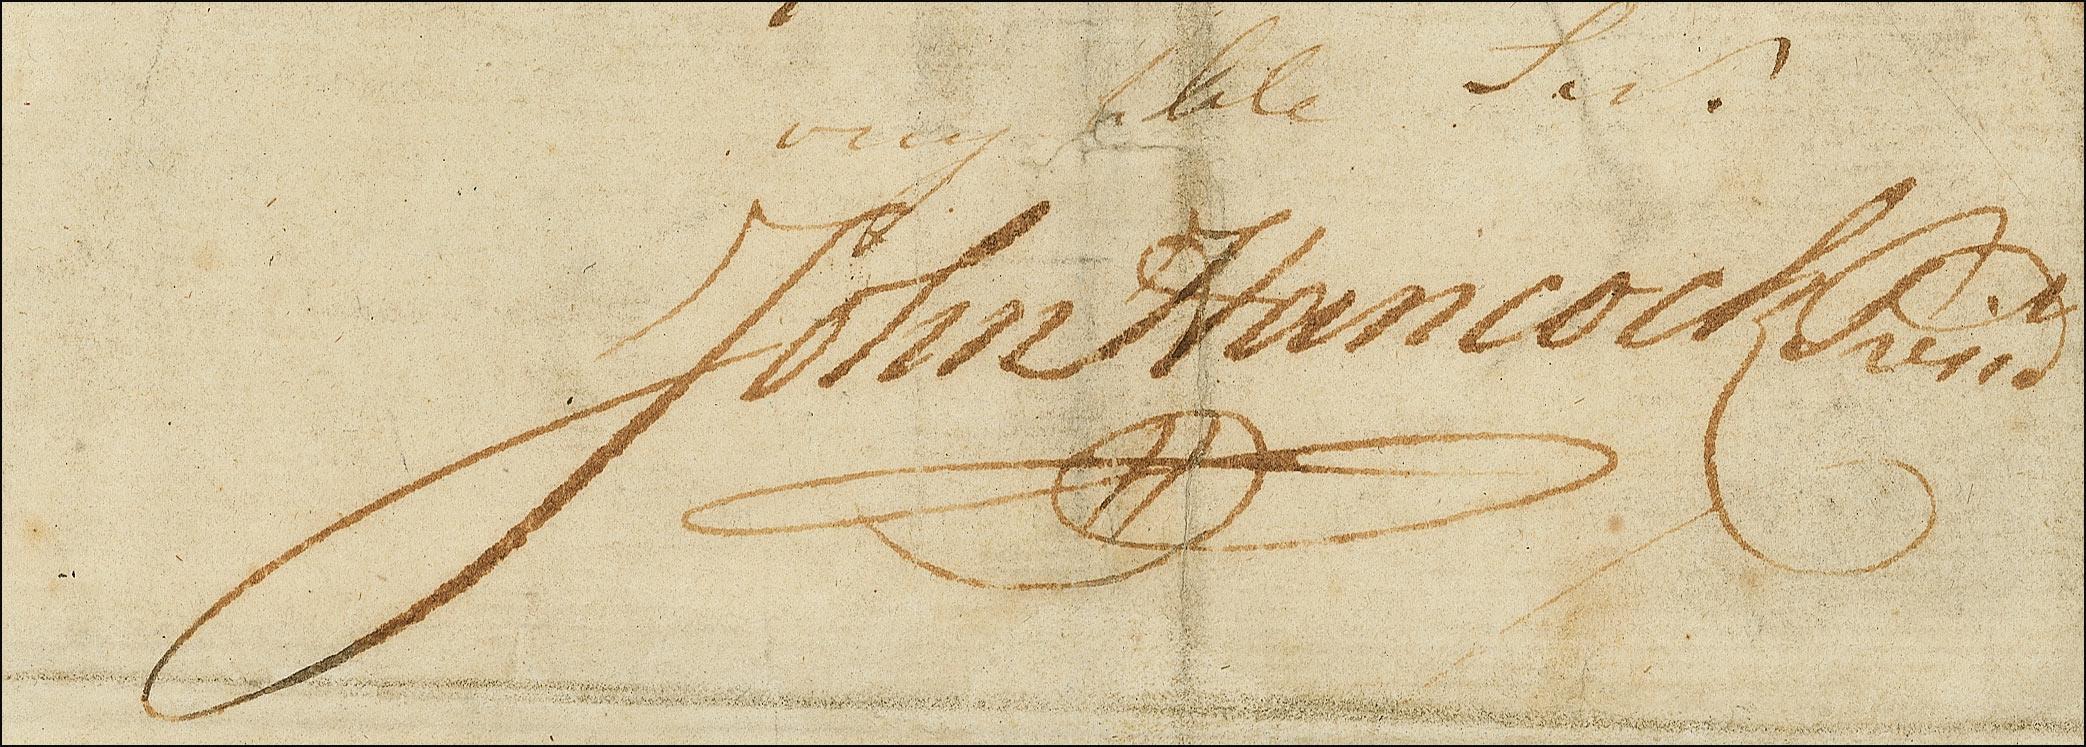 very hble Servt
John Hancock Presid